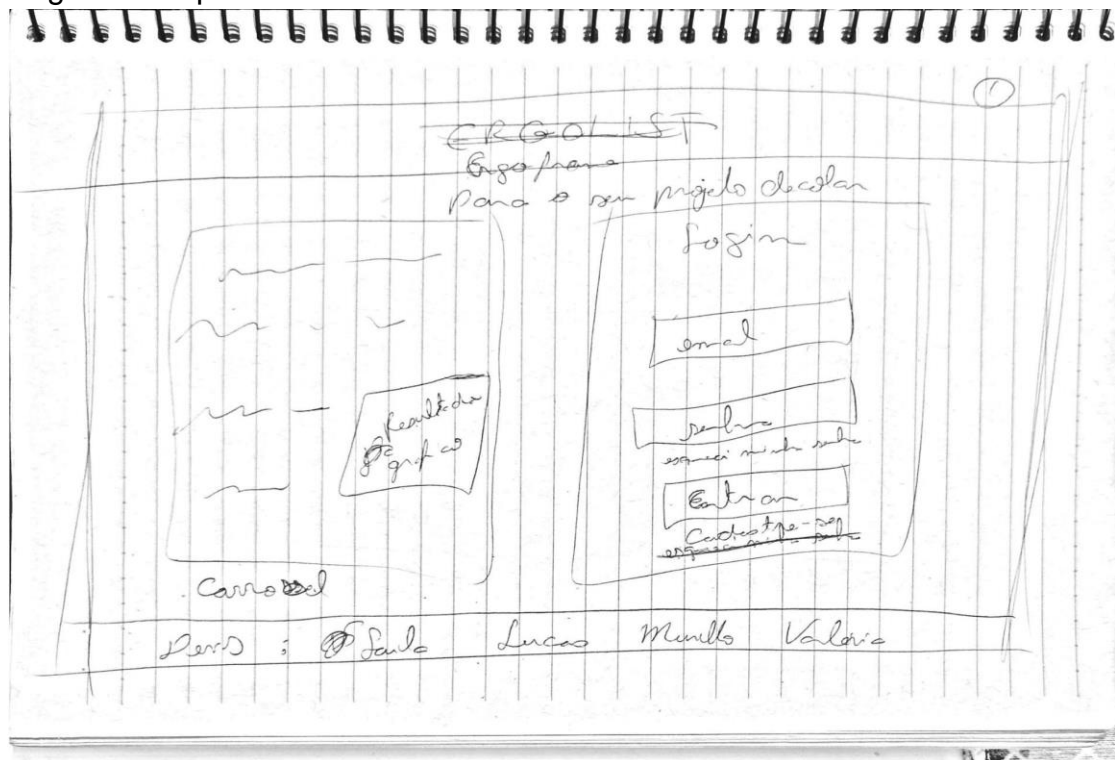 1
ERGOLIST
para o seu projeto decolar
Resultado
grafico
Carrossel
Login
email
senha
esqueci minha senha
Entrar
Cadastre-se
esqueci minha senha
Devs : Saulo Lucas Murillo Valéria